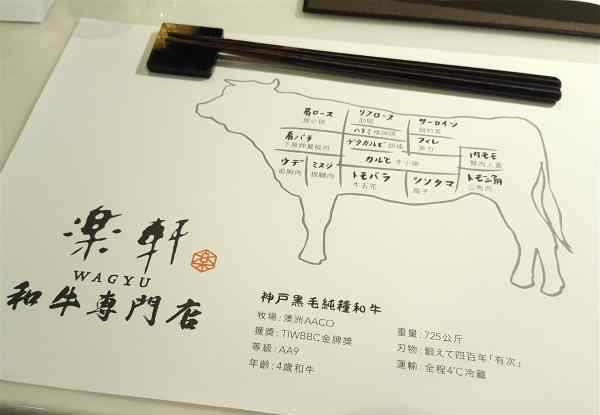 肩ロース
リブロース
肋眼
サーロイン
ハラミ
フィレ
菲力
肩バラ
ゲタカルビ
カルビ
牛小排
内モモ
ウデ
前胸肉
ミスジ
トモバラ
牛五花
シンタマ
トモ三角
三角肉
楽軒
WAGYU
和牛專門店
神戸黒毛純種和牛
牧場：澳洲AACO
獲獎：TIWBBC金牌獎
等級：AA9
年齡：4歲和牛
重量：725公斤
刃物：鍛えて四百年「有次」
運輸：全程4℃冷藏